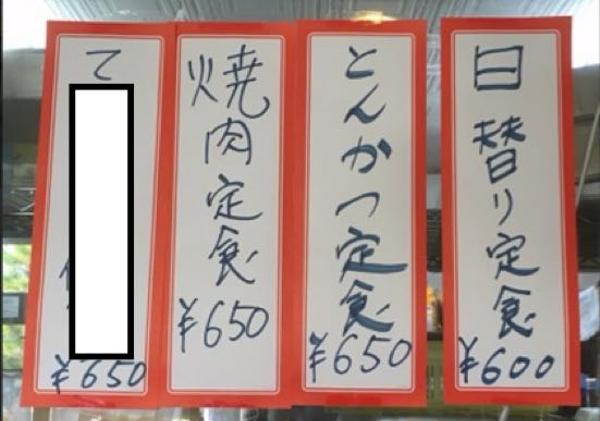 日替り定食
¥600
とんかつ定食
¥650
焼肉定食
¥650
て
¥650